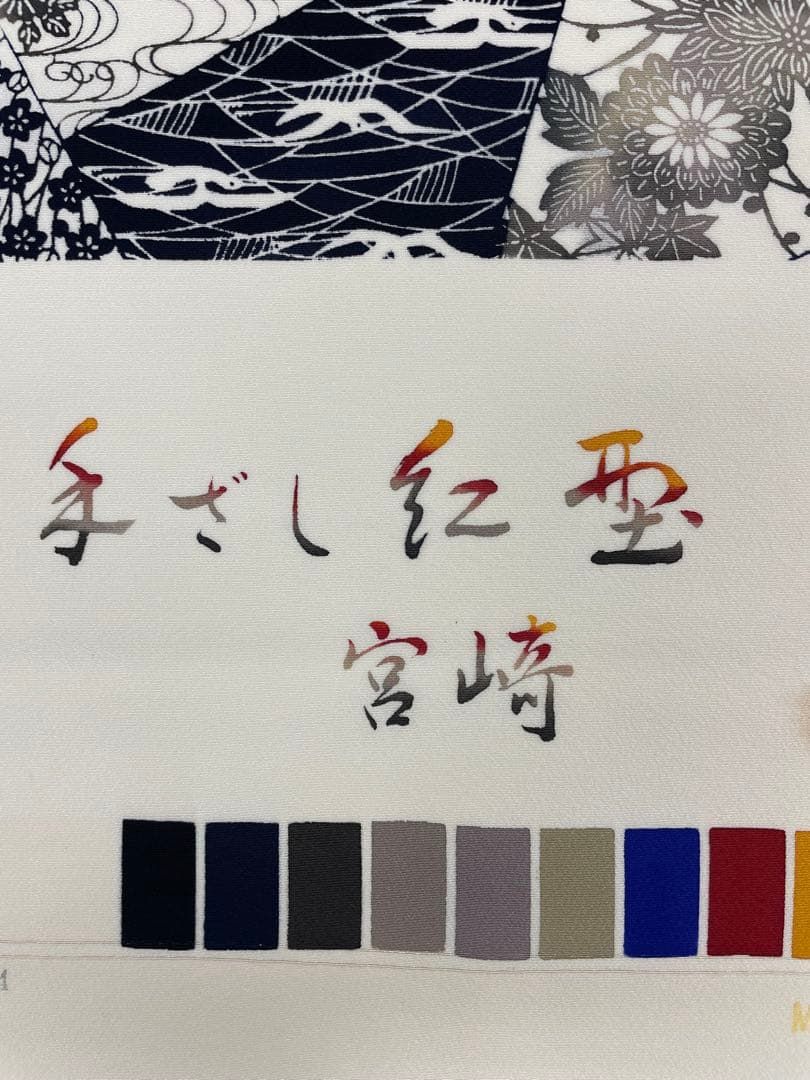 手ざし紅型
宮崎